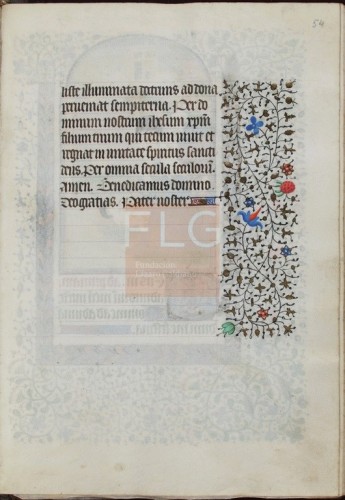 54
liste illuminata doctrinis ad dona
perveniat sempiterna. Per do
minum nostrum ihesum xpm
filium tuum qui tecum vivit et
regnat in unitate spiritus sancti
deus. Per omnia secula seculorum.
amen. Benedicamus domino.
Deo gratias. Pater noster
FLG
Fundación
Lázaro Galdiano